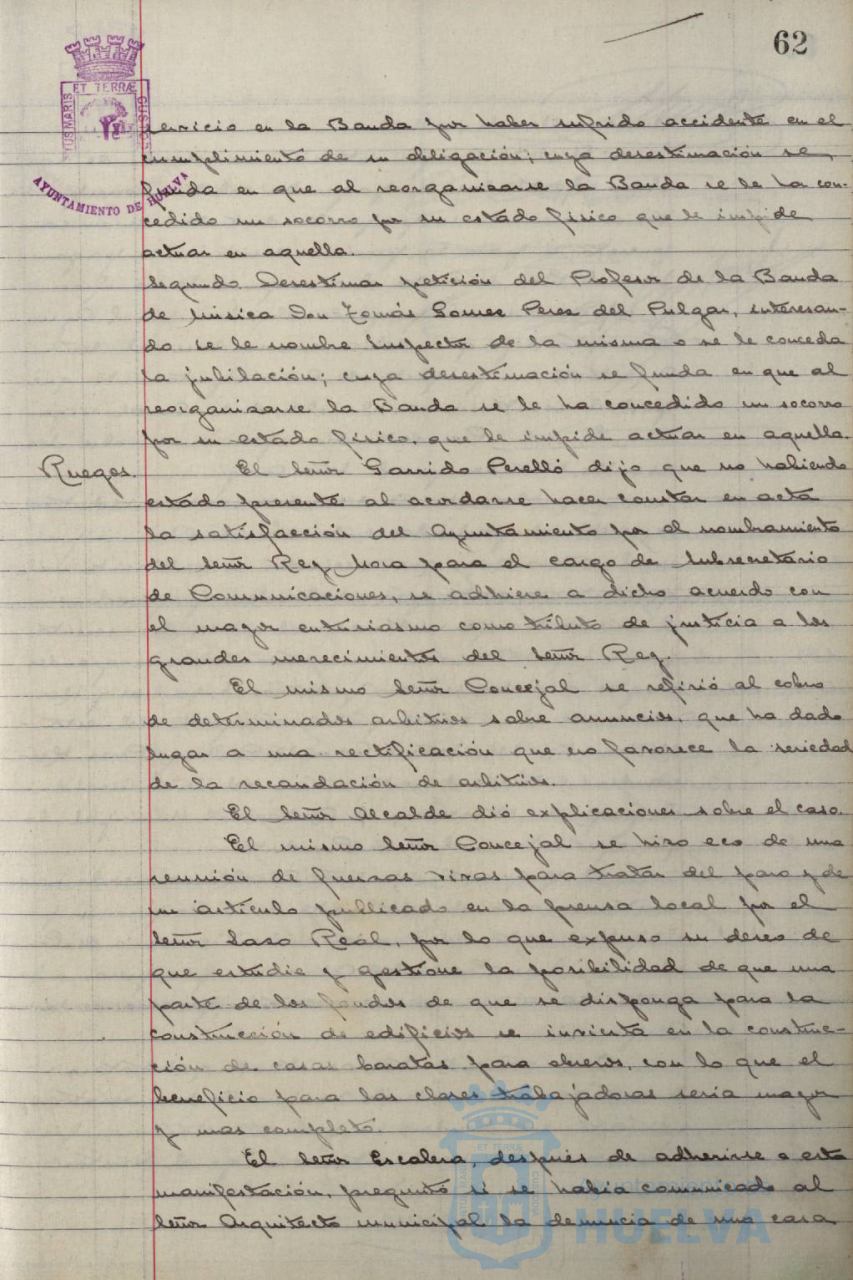 62
ET TERRÆ
AYUNTAMIENTO DE HUELVA
servicio en la Banda por haber sufrido accidente en el
cumplimiento de su obligación; cuya desestimación se
funda en que al reorganizarse la Banda se le ha con-
cedido un socorro por su estado físico que le impide
actuar en aquella.
Segundo. Desestimar petición del Profesor de la Banda
de Música Don Tomás Gomez Perez del Pulgar, interesan-
do se le nombre Inspector de la misma o se le conceda
la jubilación; cuya desestimación se funda en que al
reorganizarse la Banda se le ha concedido un socorro
por su estado físico, que le impide actuar en aquella.
Ruegos. El Señor Garrido Perelló dijo que no habiendo
estado presente al acordarse hacer constar en acta
la satisfacción del Ayuntamiento por el nombramiento
del Señor Rey Mora para el cargo de Subsecretario
de Comunicaciones, se adhiere a dicho acuerdo con
el mayor entusiasmo como tributo de justicia a los
grandes merecimientos del Señor Rey.
El mismo Señor Concejal se refirió al cobro
de determinados arbitrios sobre anuncios, que ha dado
lugar a una rectificación que no favorece la seriedad
de la recaudación de arbitrios.
El Señor Alcalde dió explicaciones sobre el caso.
El mismo Señor Concejal se hizo eco de una
reunión de fuerzas vivas para tratar del paro y de
un artículo publicado en la prensa local por el
Señor Laso Real, por lo que expuso su deseo de
que estudie y gestione la posibilidad de que una
parte de los fondos de que se disponga para la
construcción de edificios se invierta en la construc-
ción de casas baratas para obreros, con lo que el
beneficio para las clases trabajadoras seria mayor
y mas completo.
El Señor Escalera, después de adherirse a esta
manifestación, preguntó si se habia comunicado al
Señor Arquitecto municipal la denuncia de una casa
HUELVA